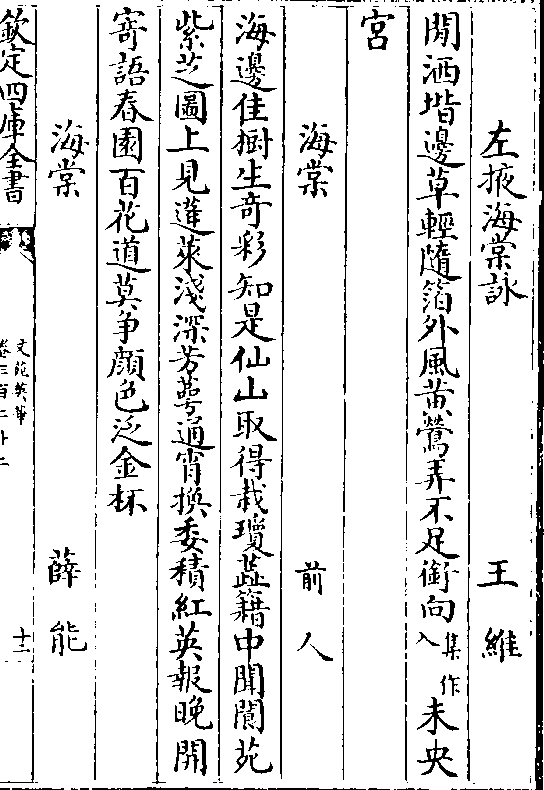 左掖海棠詠 王維
閒洒堦邊草輕隨箔外風黃鶯弄不足銜向集作入未央
宮
海棠 前人
海邊佳樹生奇彩知是仙山取得栽瓊蘂籍中聞閬苑
紫芝圖上見蓬萊淺深芳萼通宵換委積紅英報晚開
寄語春園百花道莫争顔色泛金杯
海棠 薛能
欽定四庫全書
文苑英華
卷三百二十二
十三